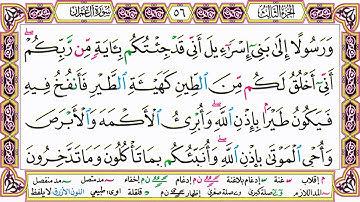 الجزء الثالث ٥٦ سورة آل عمران
وَرَسُولًا إِلَىٰ بَنِىٓ إِسْرَٰٓءِيلَ أَنِّى قَدْ جِئْتُكُم بِـَٔايَةٍ مِّن رَّبِّكُمْ
أَنِّىٓ أَخْلُقُ لَكُم مِّنَ ٱلطِّينِ كَهَيْـَٔةِ ٱلطَّيْرِ فَأَنفُخُ فِيهِ
فَيَكُونُ طَيْرًۢا بِإِذْنِ ٱللَّهِ ۖ وَأُبْرِئُ ٱلْأَكْمَهَ وَٱلْأَبْرَصَ
وَأُحْىِ ٱلْمَوْتَىٰ بِإِذْنِ ٱللَّهِ ۖ وَأُنَبِّئُكُم بِمَا تَأْكُلُونَ وَمَا تَدَّخِرُونَ